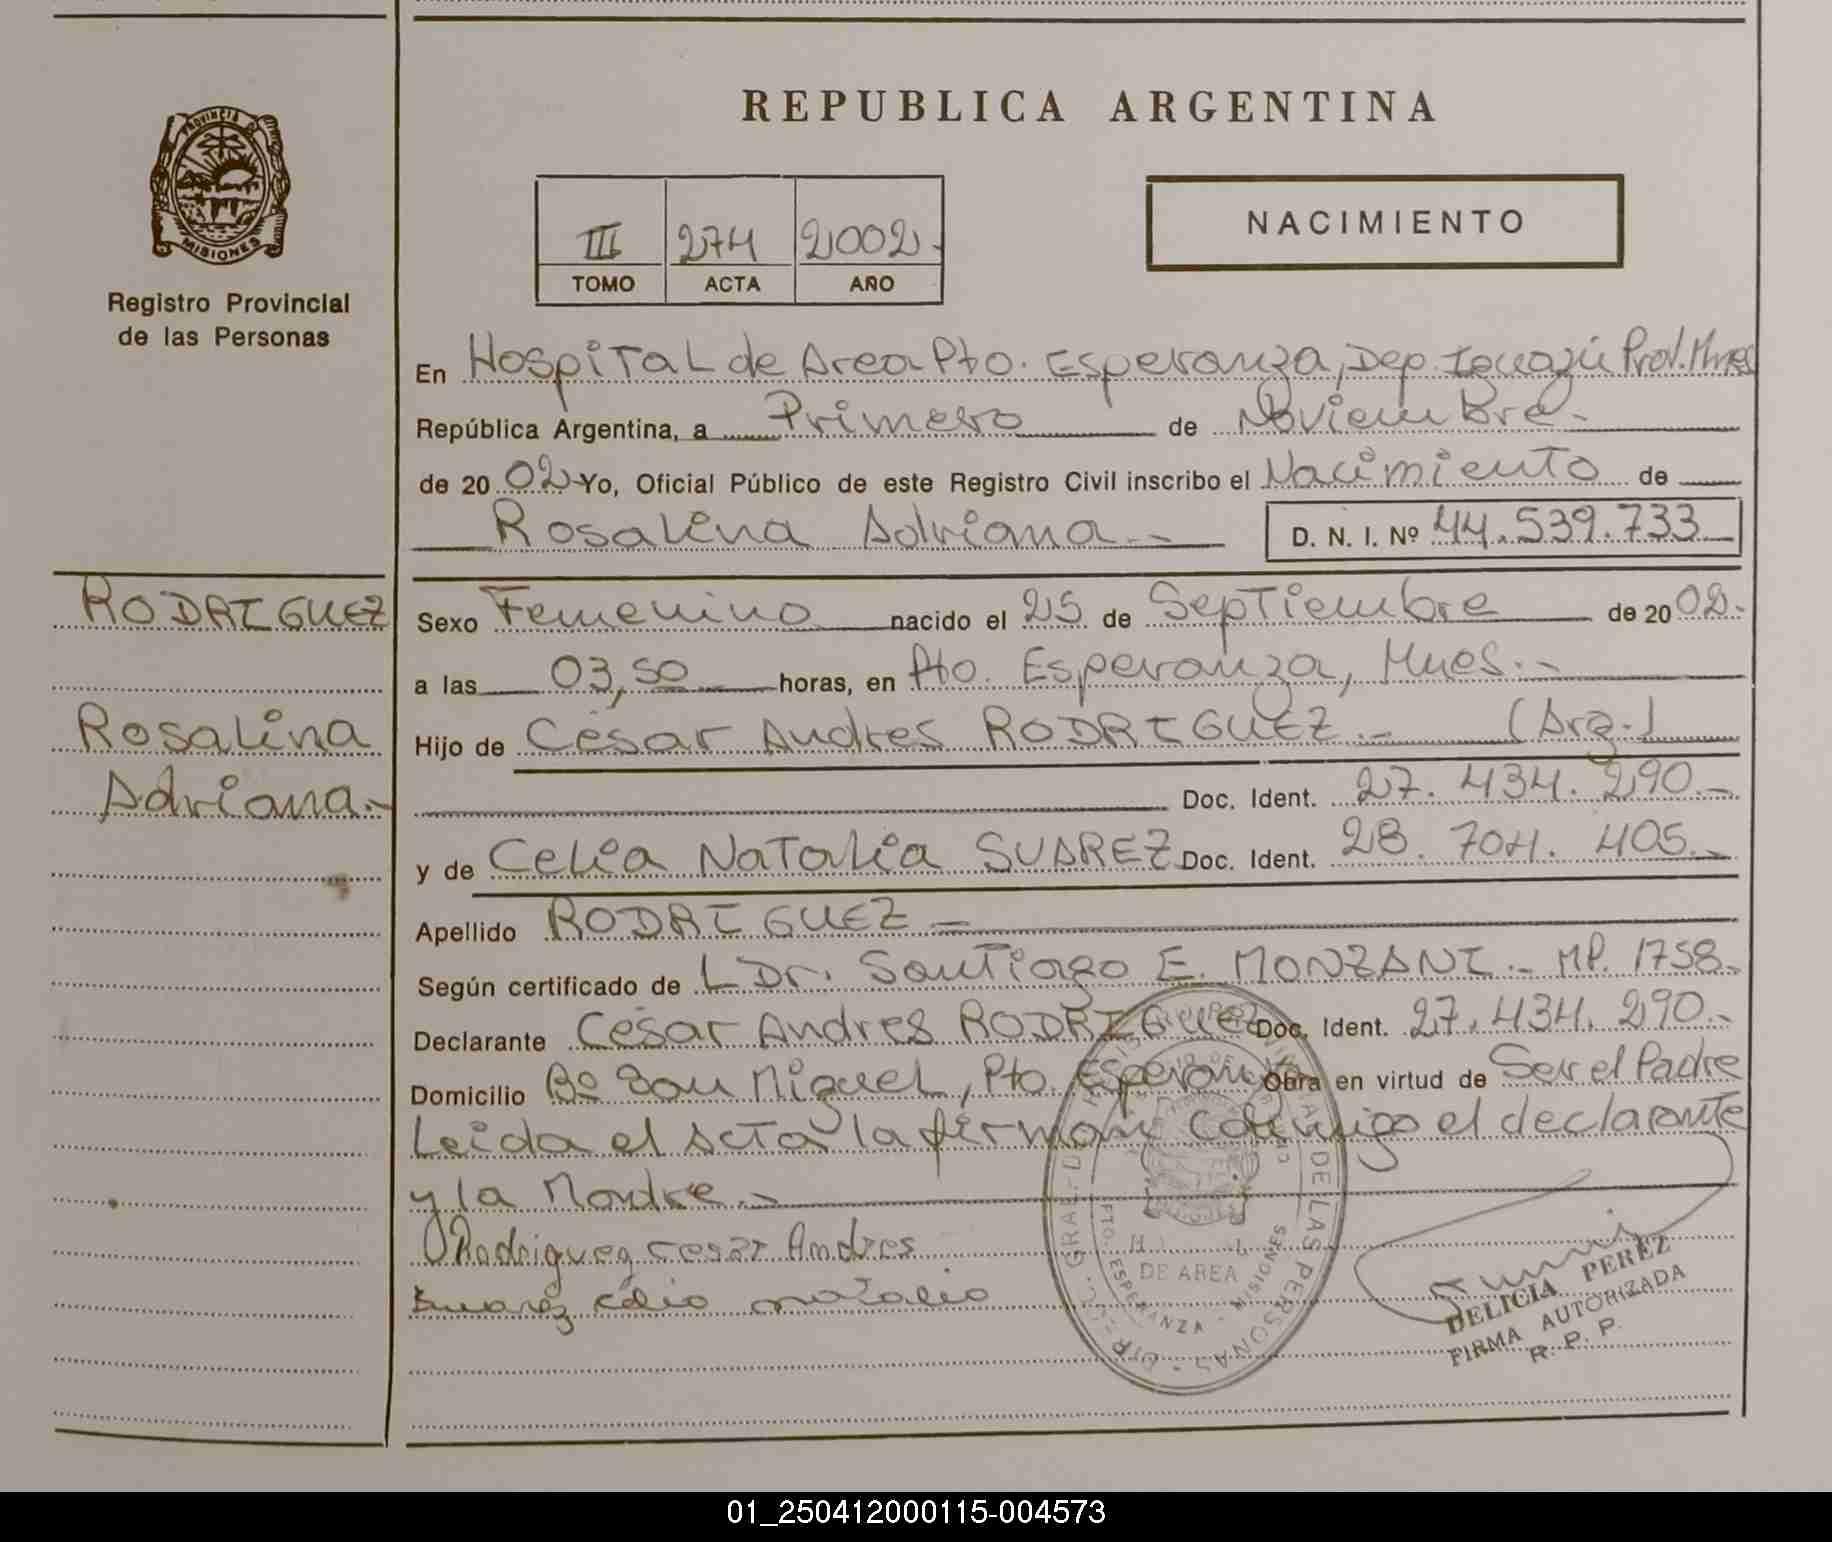 REPUBLICA ARGENTINA
PROVINCIA DE
MISIONES
Registro Provincial
de las Personas
III 274 2002.
TOMO ACTA AÑO
NACIMIENTO
En Hospital de Area Pto. Esperanza, Dep. Iguazú Prov. Mnes
República Argentina, a Primero de Noviembre.-
de 20 02 Yo, Oficial Público de este Registro Civil inscribo el Nacimiento de
Rosalina Adriana.- D. N. I. Nº 44.539.733
RODRIGUEZ
Rosalina
Adriana.-
Sexo Femenino nacido el 25 de Septiembre de 20 02.-
a las 03,50 horas, en Pto. Esperanza, Mnes.-
Hijo de César Andres RODRIGUEZ.- (Arg.)
Doc. Ident. 27.434.290.-
y de Celia Natalia SUAREZ Doc. Ident. 28.704.405.-
Apellido RODRIGUEZ -
Según certificado de L Dr. Santiago E. MONZANI.- MP. 1758.
Declarante César Andres RODRIGUEZ Doc. Ident. 27.434.290.-
Domicilio Bº San Miguel, Pto. Esperanza Obra en virtud de Ser el Padre
Leida el Acta la firman conmigo el declarante
y la Madre.-
Rodriguez cesar Andres
Suarez celia natalia
DE LAS PERSONAS
DE AREA
PTO. ESPERANZA - MISIONES
DELICIA PEREZ
FIRMA AUTORIZADA
R. P. P.
01_250412000115-004573